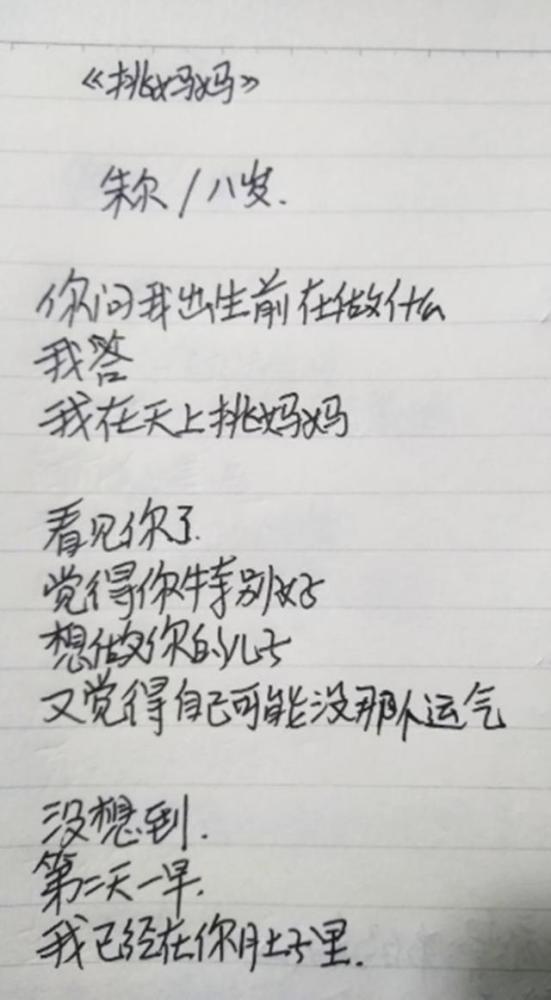 《挑妈妈》
朱尔/八岁.
你问我出生前在做什么
我答
我在天上挑妈妈
看见你了.
觉得你特别好
想做你的儿子
又觉得自己可能没那个运气
没想到.
第二天一早.
我已经在你肚子里.